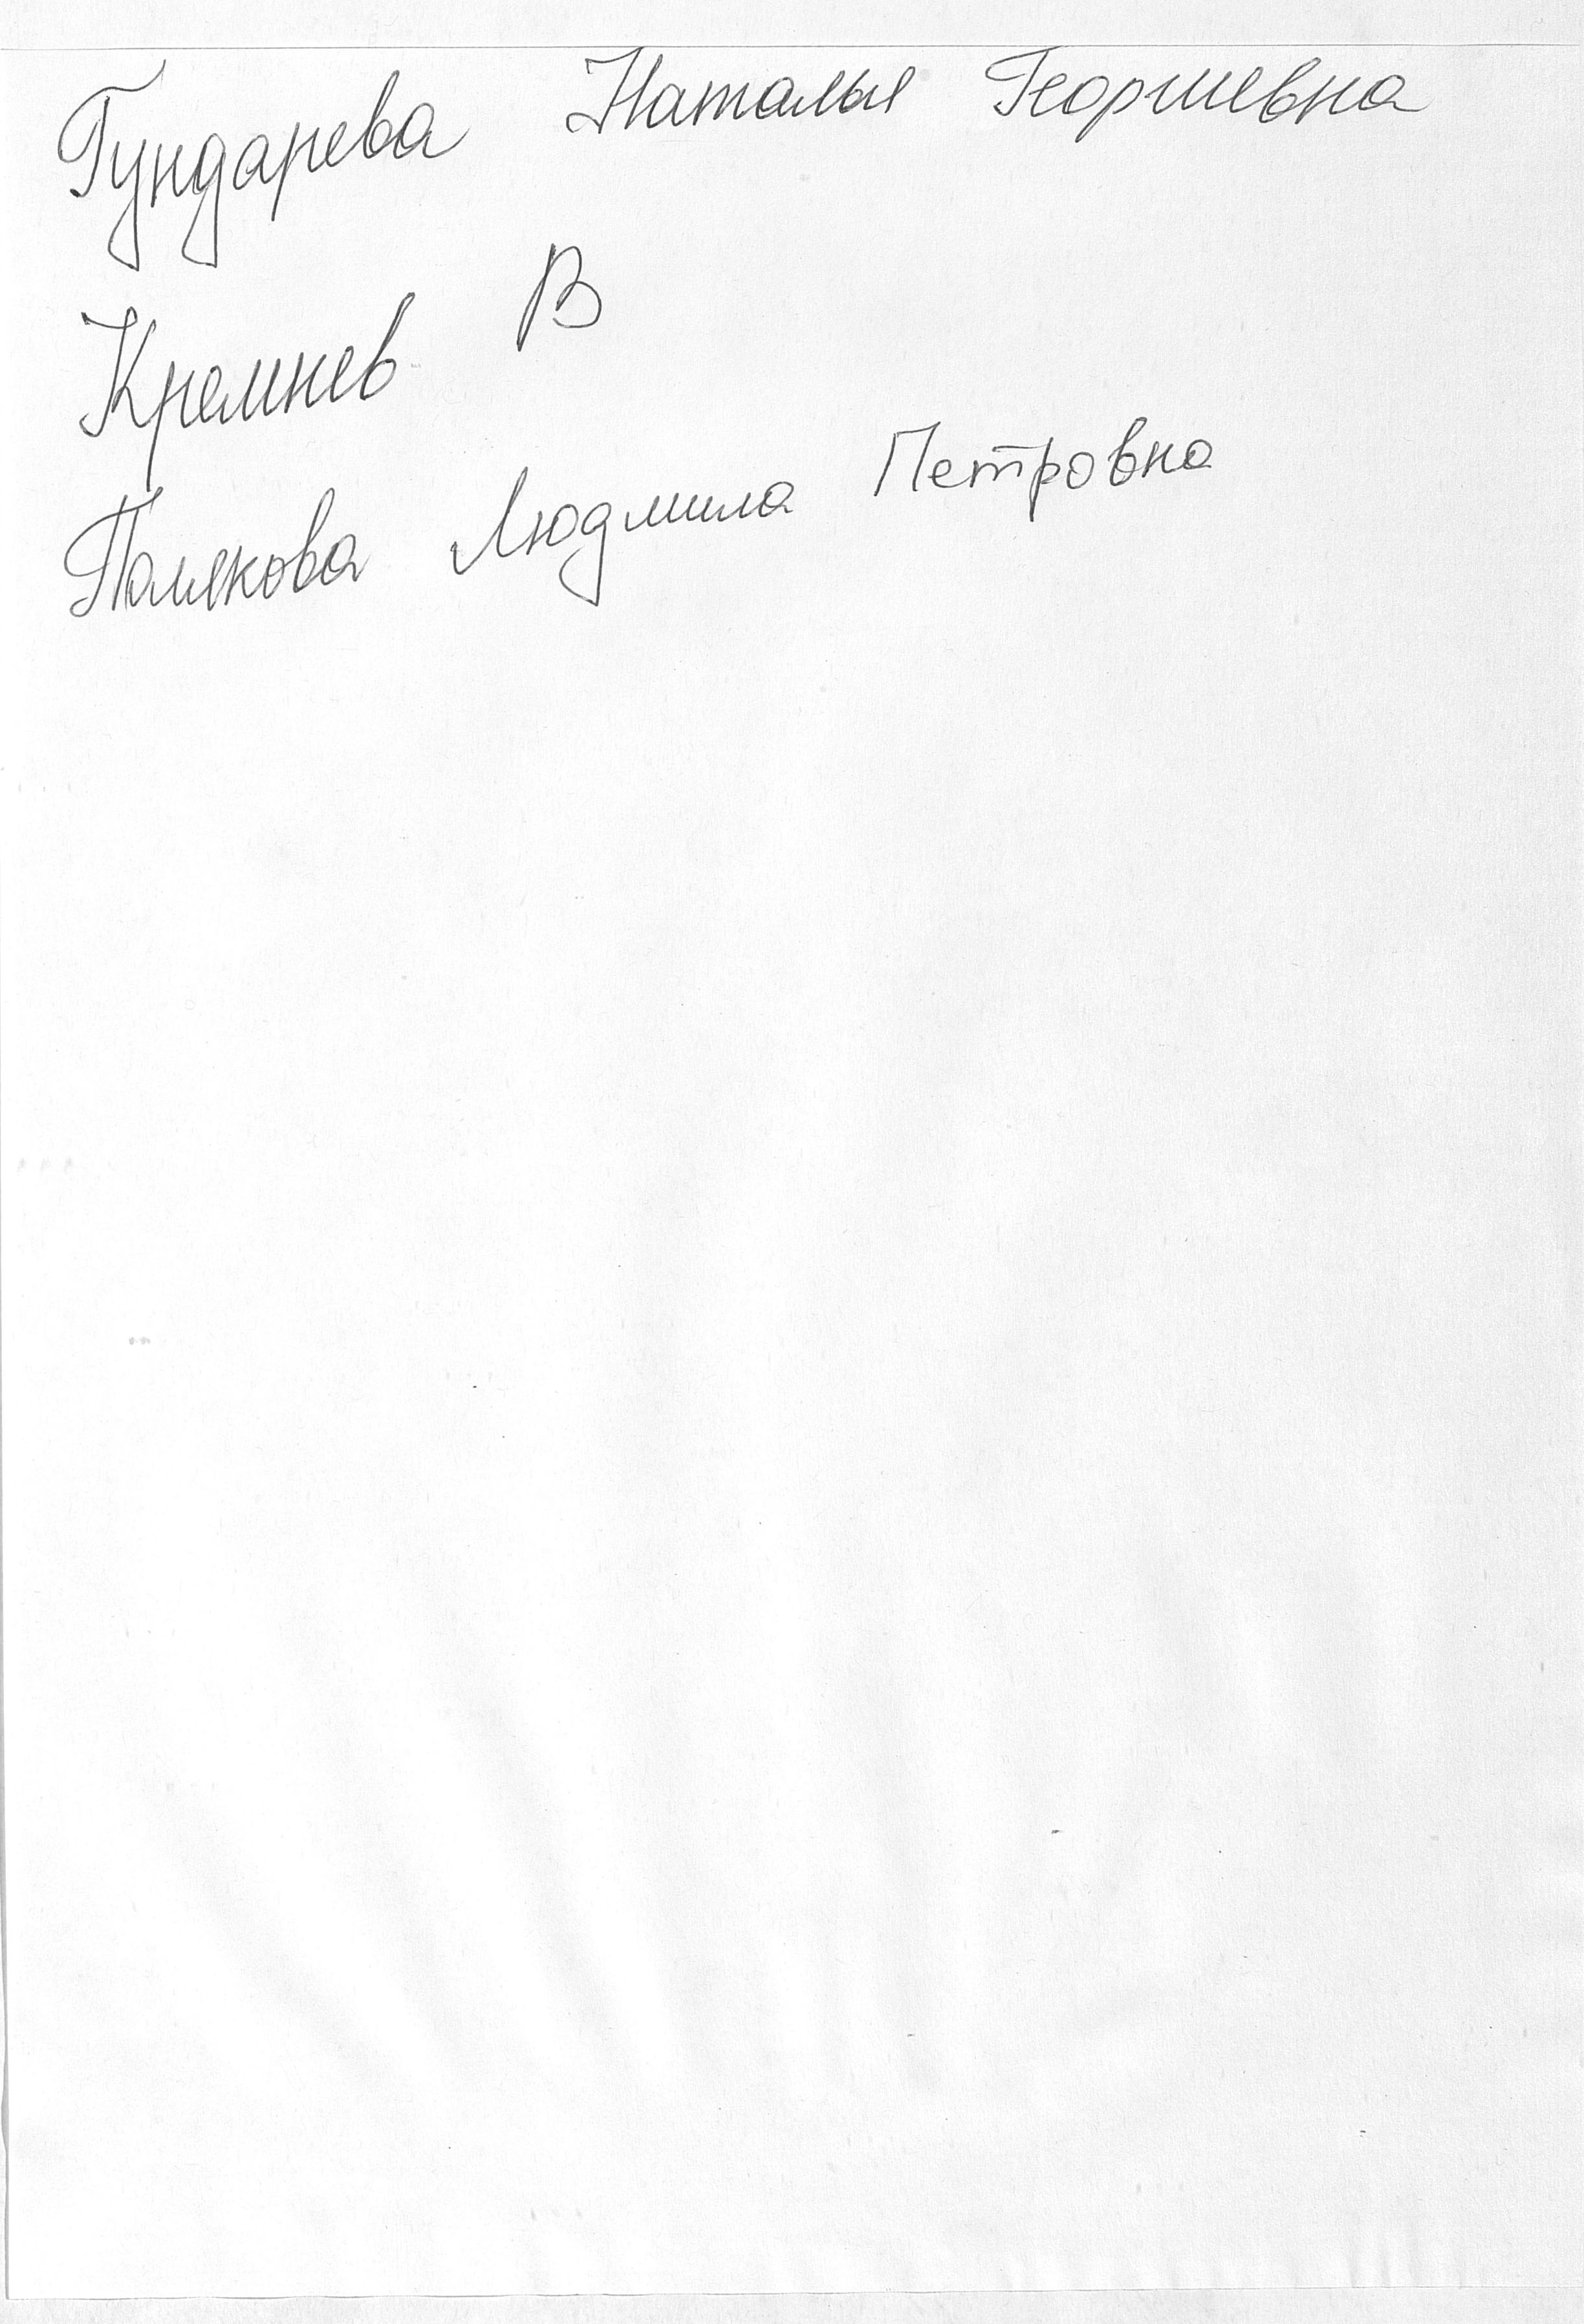 Гундарева Наталья Георгиевна
Кремнев В
Полякова Людмила Петровна